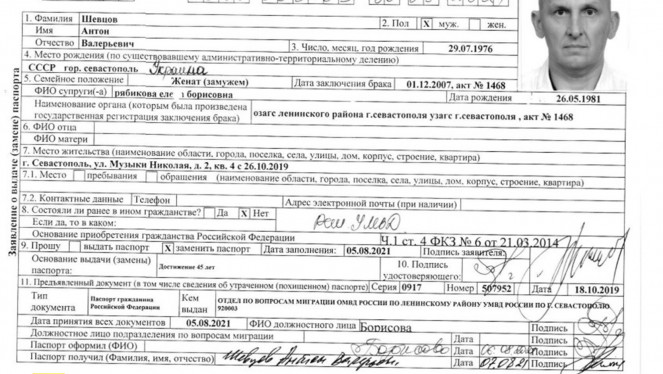 1. Фамилия Шевцов
Имя Антон 2. Пол X муж. жен.
Отчество Валерьевич 3. Число, месяц, год рождения 29.07.1976
4. Место рождения (по существовавшему административно-территориальному делению)
СССР гор. севастополь Украина
5. Семейное положение Женат (замужем) Дата заключения брака 01.12.2007, акт № 1468
ФИО супруги(-а) рябикова еле борисовна Дата рождения 26.05.1981
Наименование органа (которым была произведена государственная регистрация заключения брака) озагс ленинского района г.севастополя узагс г.севастополя , акт № 1468
6. ФИО отца
ФИО матери
7. Место жительства (наименование области, города, поселка, села, улицы, дом, корпус, строение, квартира)
г. Севастополь, ул. Музыки Николая, д. 2, кв. 4 с 26.10.2019
7.1. Место пребывания обращения (наименование области, города, поселка, села, улицы, дом, корпус, строение, квартира)
7.2. Контактные данные Телефон Адрес электронной почты (при наличии)
8. Состояли ли ранее в ином гражданстве? Да X Нет
Если да, то в каком:
Основание приобретения гражданства Российской Федерации Ч.1 ст. 4 ФКЗ № 6 от 21.03.2014
9. Прошу выдать паспорт X заменить паспорт Дата заполнения: 05.08.2021 Подпись заявителя:
Основание выдачи (замены) паспорта Достижение 45 лет 10. Подпись удостоверяющего:
11. Предъявленный документ (в том числе сведения об утраченном (похищенном) паспорте) Серия 0917 Номер 507952 Дата выдачи 18.10.2019
Тип документа Паспорт гражданина Российской Федерации Кем выдан ОТДЕЛ ПО ВОПРОСАМ МИГРАЦИИ ОМВД РОССИИ ПО ЛЕНИНСКОМУ РАЙОНУ УМВД РОССИИ ПО Г. СЕВАСТОПОЛЮ
920003
Дата принятия всех документов 05.08.2021 ФИО должностного лица Борисова Подпись
Должностное лицо подразделения по вопросам миграции Подпись
Паспорт оформил (ФИО) Борисова Подпись
Паспорт получил (Фамилия, имя, отчество) Шевцов Антон Валерьевич Подпись
Заявление о выдаче (замене) паспорта